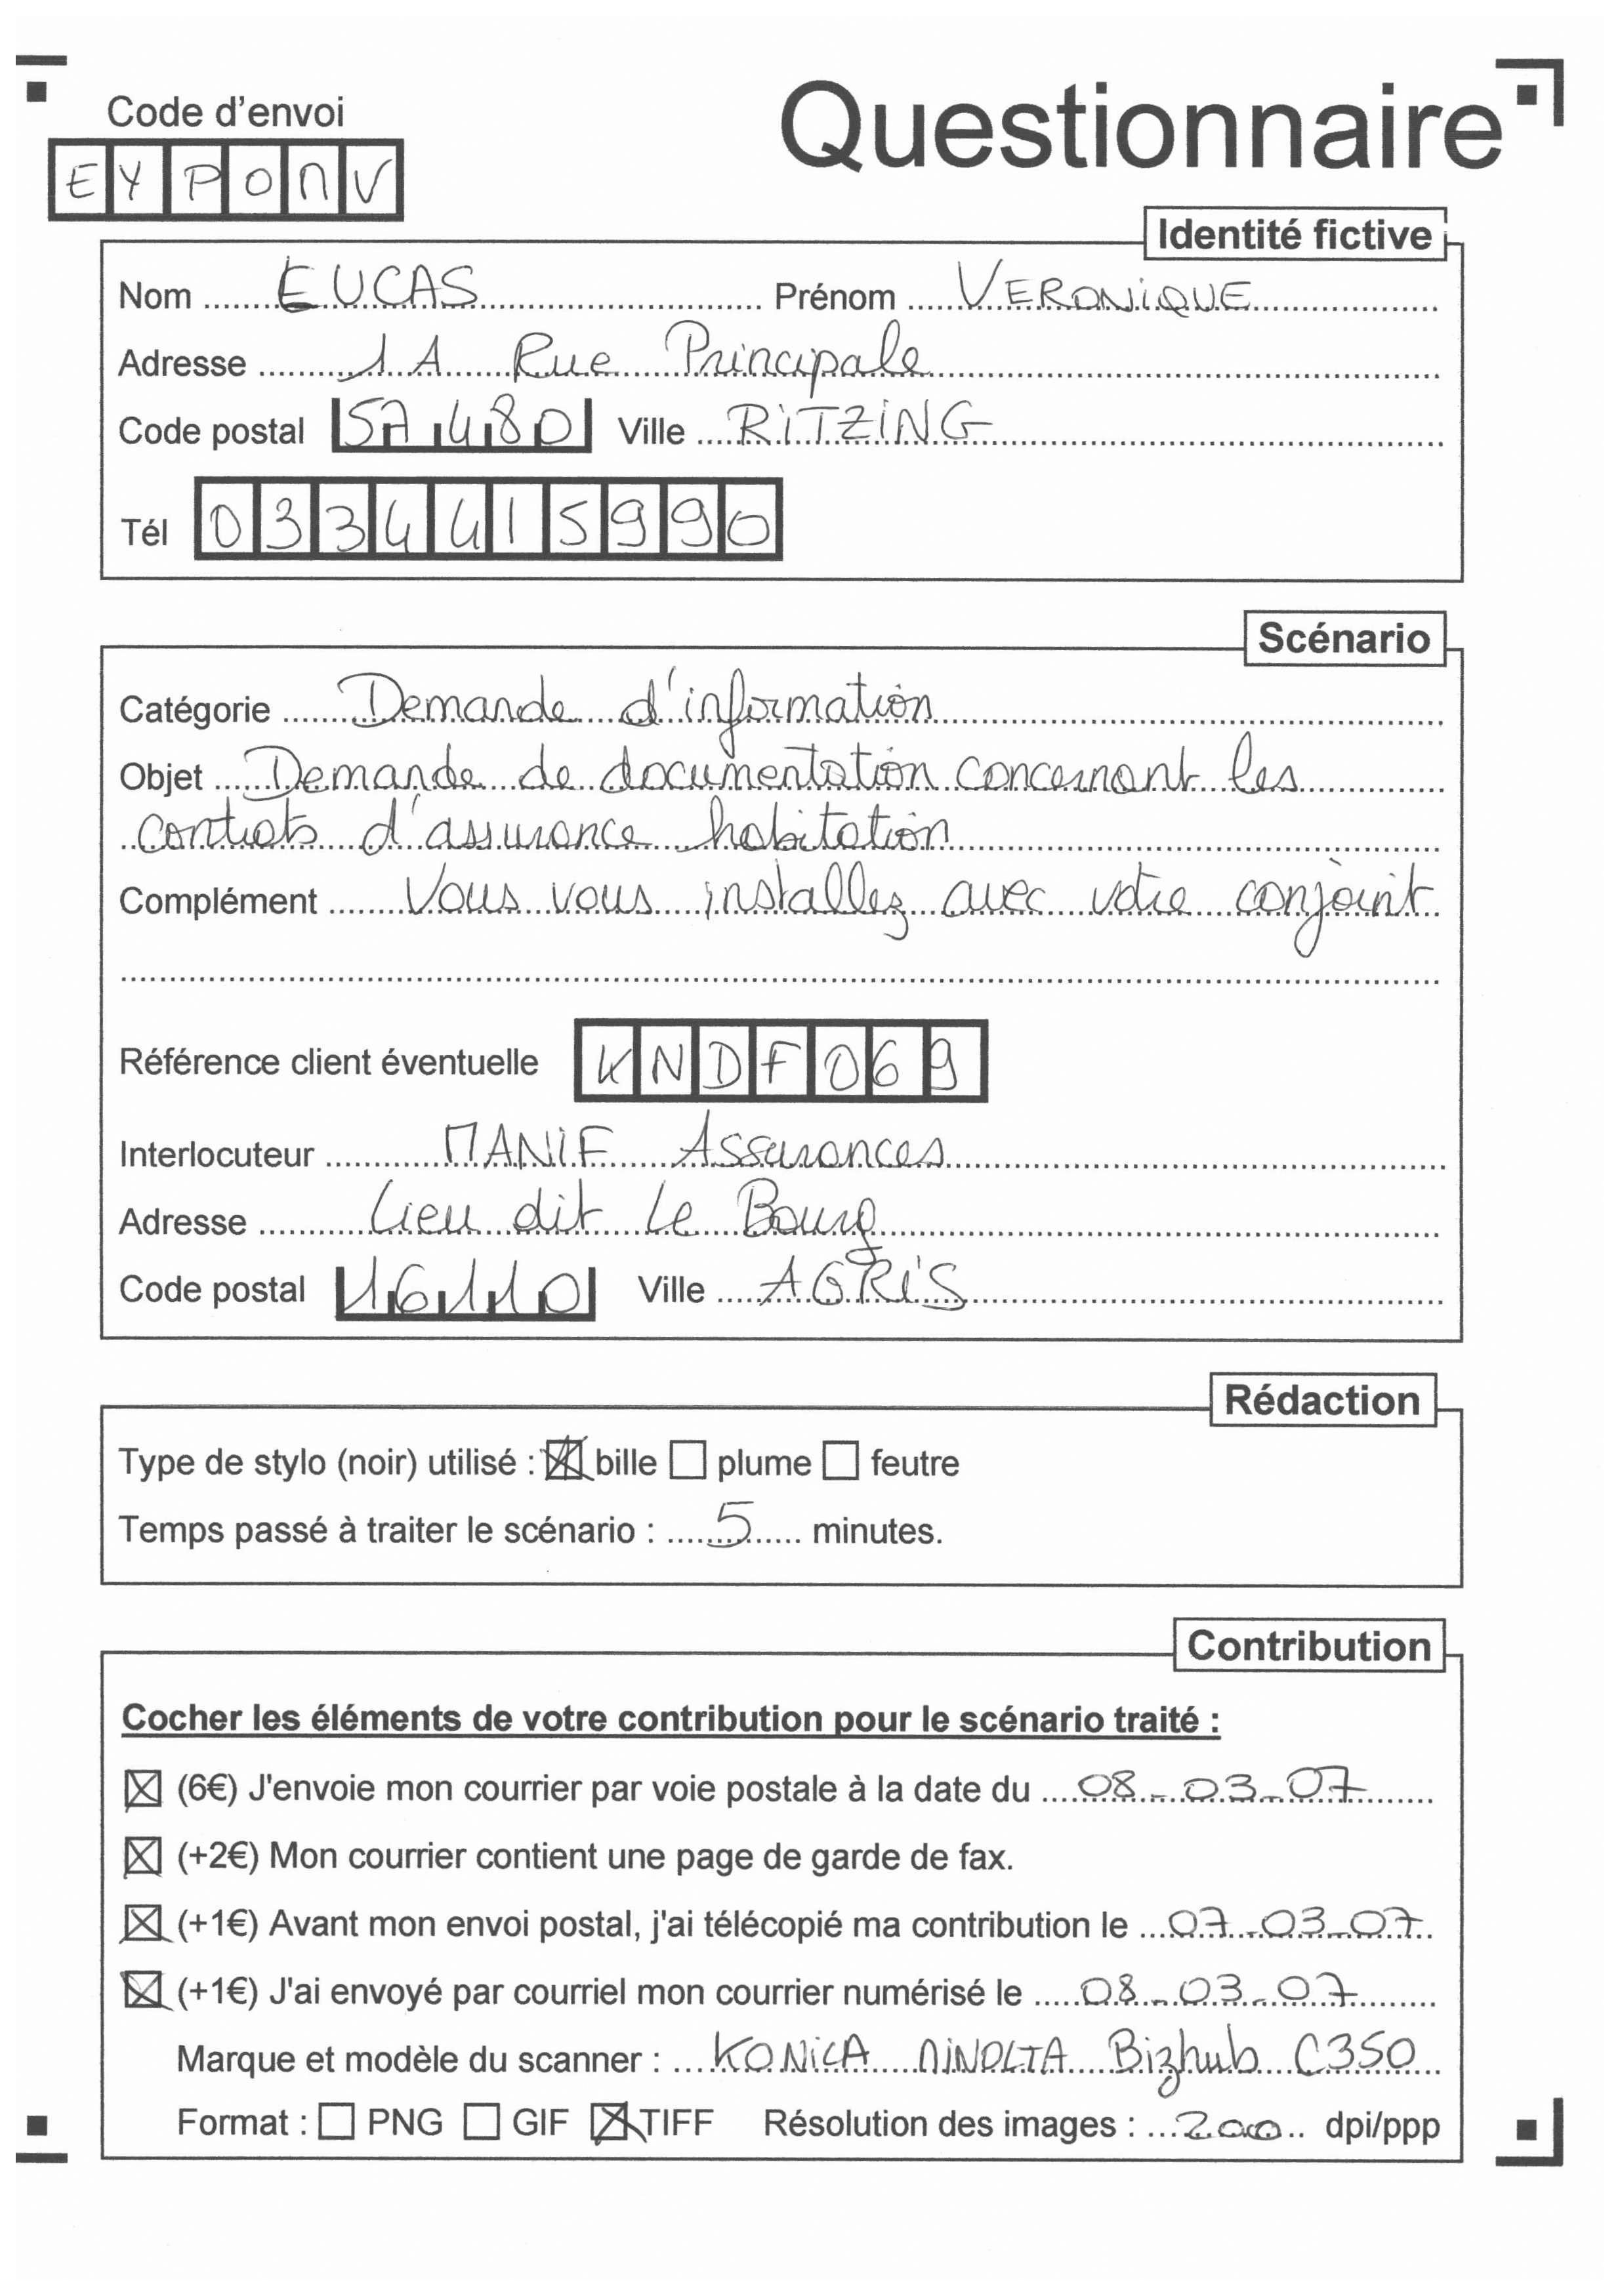 Questionnaire
Code d'envoi
EYPOMV
Identité fictive
Nom EUCAS Prénom VERONIQUE
Adresse 1A Rue Principale
Code postal 57480 Ville RITZING
Tél 0334415990
Scénario
Catégorie Demande d'information
Objet Demande de documentation concernant les
contrats d'assurance habitation
Complément Vous vous installez avec votre conjoint
Référence client éventuelle KNDF069
Interlocuteur MANIF Assurances
Adresse Lieu dit Le Bourg
Code postal 16110 Ville AGRIS
Rédaction
Type de stylo (noir) utilisé : ☒ bille ☐ plume ☐ feutre
Temps passé à traiter le scénario : 5 minutes.
Contribution
Cocher les éléments de votre contribution pour le scénario traité :
☒ (6€) J'envoie mon courrier par voie postale à la date du 08-03-07
☒ (+2€) Mon courrier contient une page de garde de fax.
☒ (+1€) Avant mon envoi postal, j'ai télécopié ma contribution le 07-03-07
☒ (+1€) J'ai envoyé par courriel mon courrier numérisé le 08-03-07
Marque et modèle du scanner : KONICA MINOLTA Bizhub C350
Format : ☐ PNG ☐ GIF ☒ TIFF Résolution des images : 200 dpi/ppp